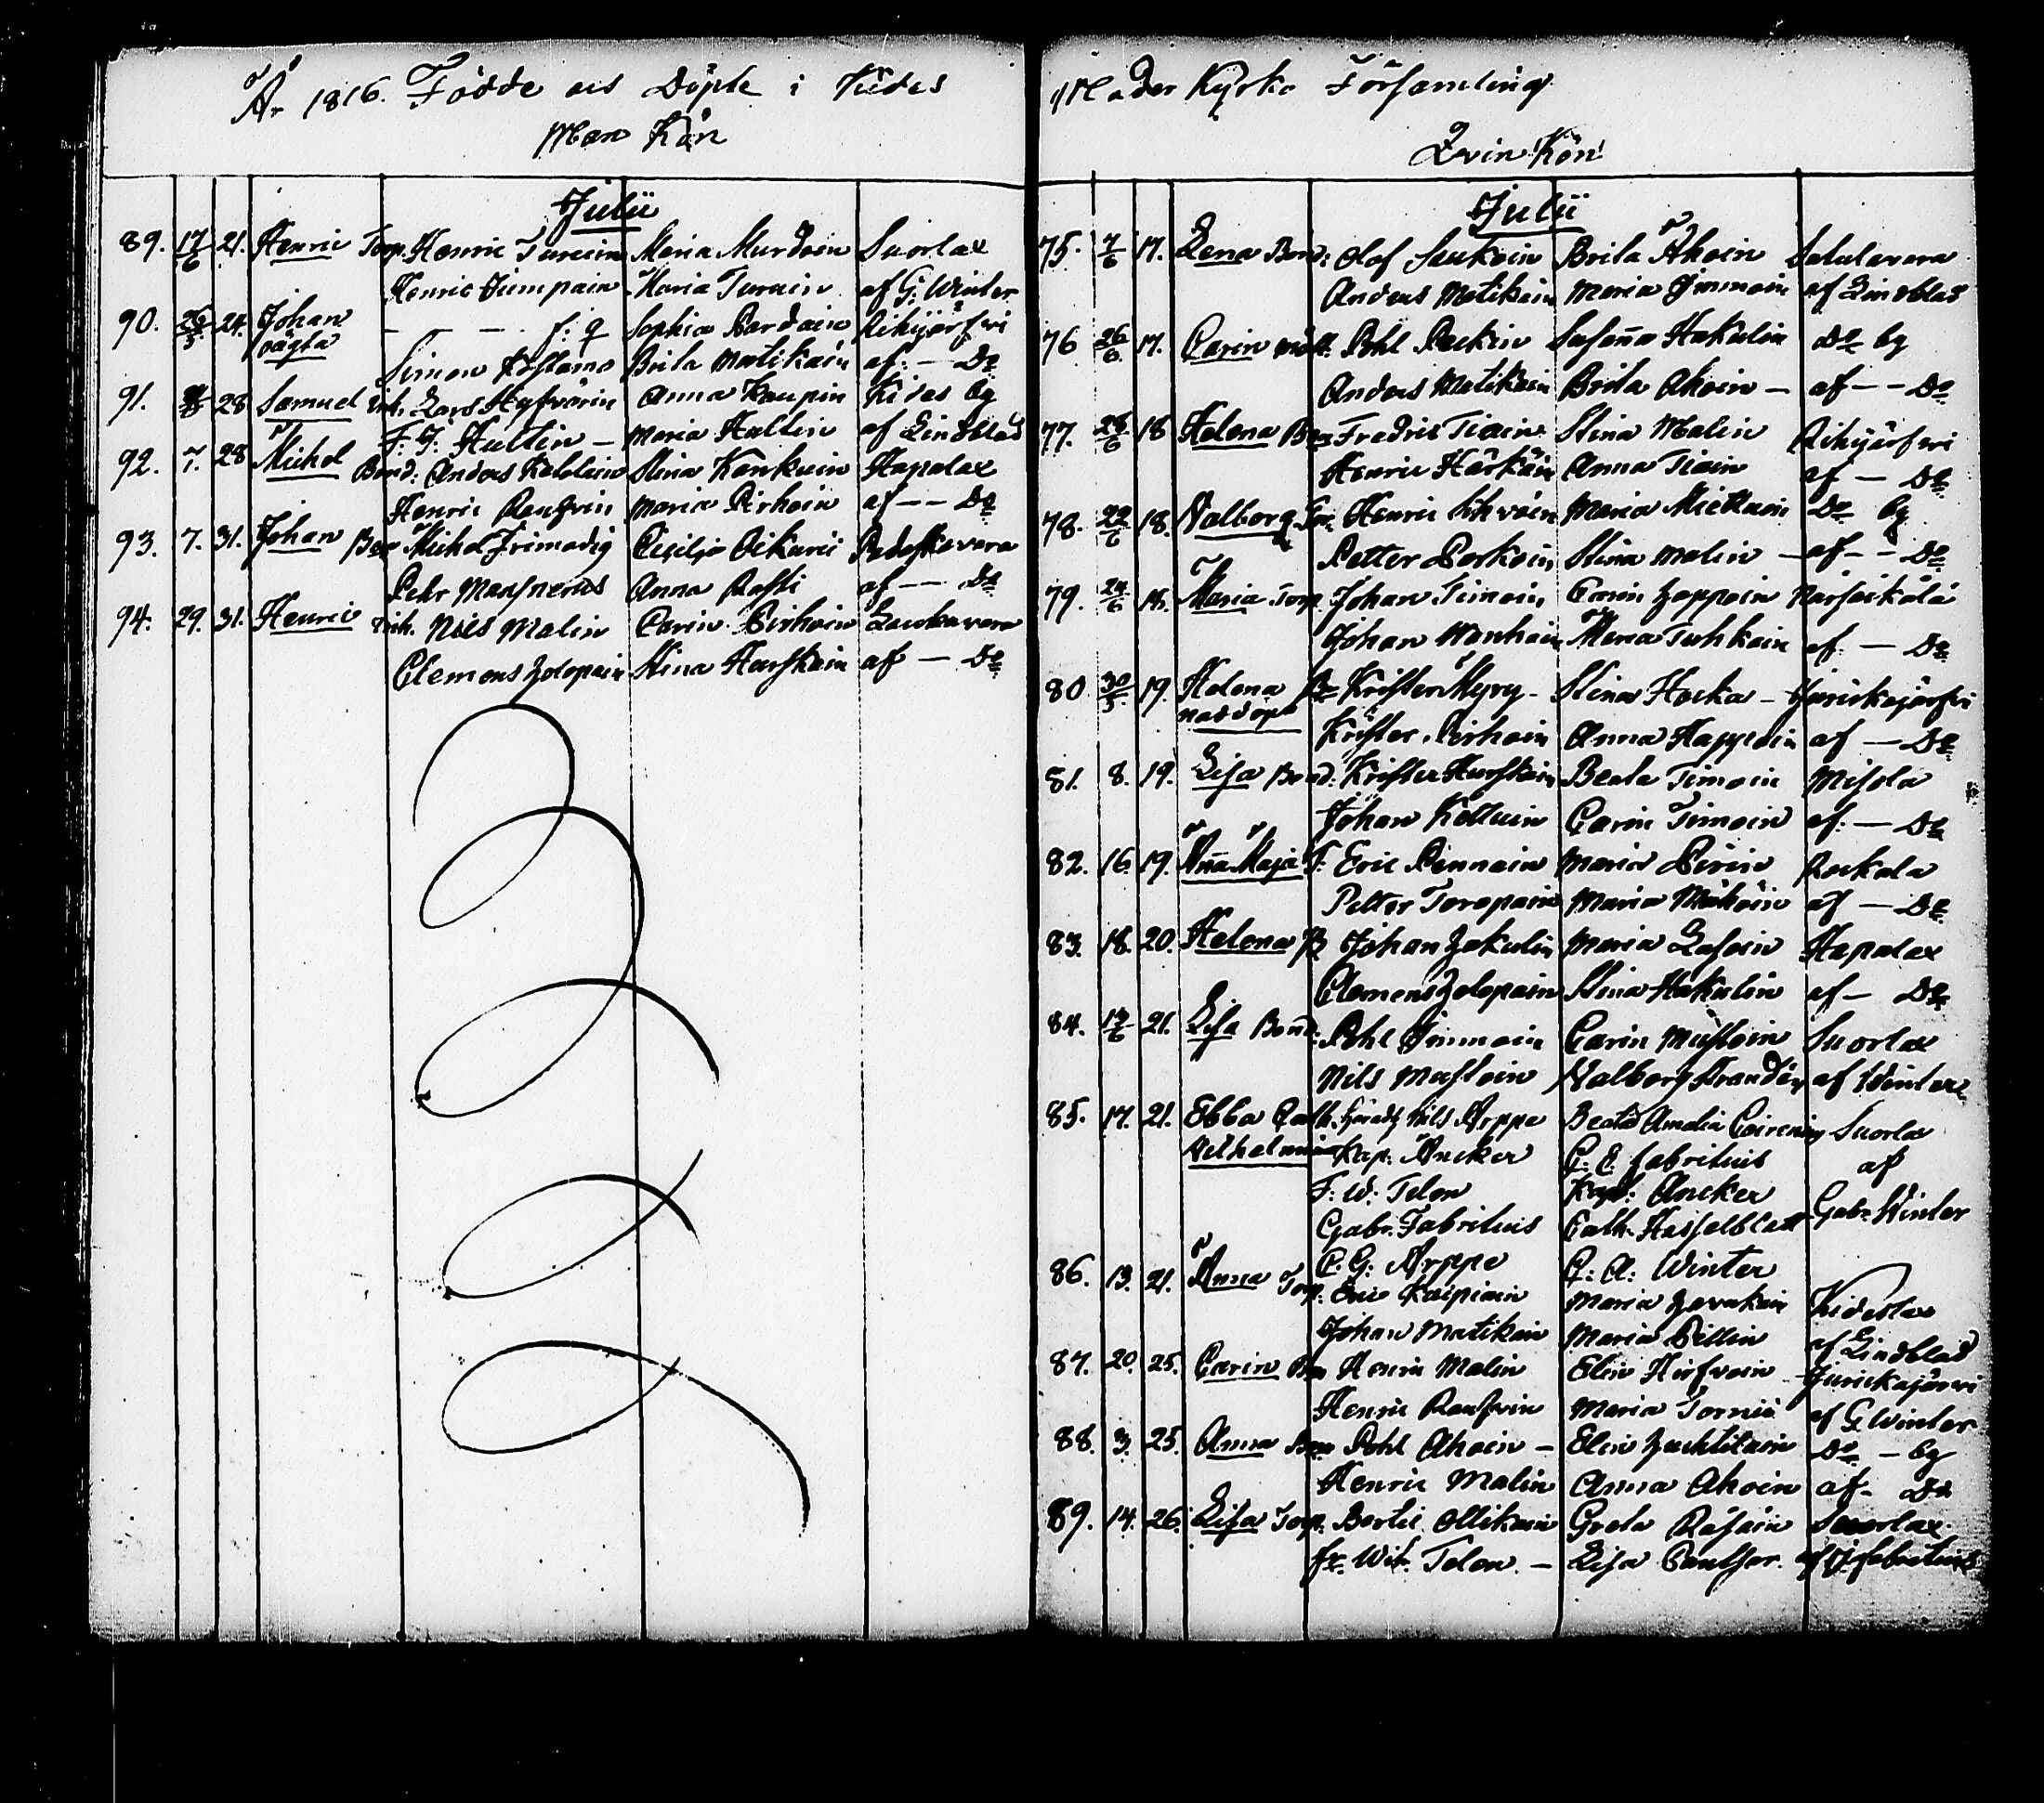 År 1816. Födde och Döpte i Kides
Man Kön
Julii
89. 17/6 21. Henric Torp. Henric Turuin Maria Murdoin Suorlax
Henric Jumpain Maria Turuin af G. Winter
90. 24. Johan - - - f: q Sophia Pardain Rihijärfvi
oägta Simon Kostamo Brita Matikain af - Do
91. 28 Samuel Inh. Lars Hyfvärin Anna Kaupin Kides by
F. J. Hultin - Maria Hultin af Lindblad
92. 7. 28 Michel Bond: Anders Kololain Stina Kankuin Hapalax
Henric Raufvin Maria Pirhoin af - - Do
93. 7. 31. Johan Bon Michel Cicilja Oikarii
Petr Magnerus Anna Rasti af - - Do
94. 29. 31. Henric Inh. Nils Malin Carin Pirhoin Laukavara
Clemens Zolopain Stina Hurskain af - Do
Moder Kyrko Församling
Qvin Kön
Julii
75. 7/6 17. Lena Bond: Olof Saukoin Brita Ahoin
Anders Matikain Maria Immoin af Lindblad
76 26/6 17. Carin Pohl Peckin Susanna Hakulin Do by
Anders Matikain Brita Ahoin - af - - Do
77. 28/6 18 Helena Bon Fredric Tiain Stina Malin Rihijärfvi
Henric Härkäin Anna Tiain af - Do
78. 22/6 18. Valborg Tor Henric Ihvoin Maria Mietluin Do by
Petter Porkoin Stina Malin - af - - Do
79. 24/6 18. Maria Torp. Johan Timoin Carin Zoppoin
Johan Wanhain Maria Tuhkain af - Do
80 19. Helena Bo Krister Myry - Stina Hocka - Jurickajärfvi
nöddöpt Krister Pirhoin Anna Happoin af - Do
81. 8. 19. Lisa Bond. Krister Hurskain Beata Timoin Misola
Johan Kettuin Carin Timoin af - Do
82. 16. 19. Anna Maja T. Eric Pennain Maria Pirin Puckala
Petter Toropain Maria Mähöin af - Do
83. 18. 20. Helena B Johan Zakulin Maria Lasoin Hapalax
Clemens Zolopain Stina Hakulin af - Do
84. 21. Lisa Bond: Pohl Immoin Carin Mustoin Suorlax
Nils Mustoin Valborg Brandén af Winter
85. 17. 21. Ebba Cath. Häradh Nils Arppe Beata Amalia Suorla
Vilhelmina Kap: Ancker C. E. Fabritius af
F: W: Telen Kapt: Ancker Gabr. Winter
Gabr. Fabritius Cath. Hasselblatt
C. G: Arppe C: A: Winter
86. 13. 21. Anna Torp. Eric Kaipiain Maria Zavukain Kideslax
Johan Matikain Maria Pillin af Lindblad
87. 20. 25. Carin Bon Henric Malin Elin Hirfvoin Jurickajärvi
Henric Raufvin Maria Tornii af G Winter
88. 3. 25. Anna Bon Pohl Ahoin - Elin Zuchtikain Do - by
Henric Malin Anna Ahoin af - Do
89. 14. 26. Lisa Torp. Bertil Ollikain Greta Räsäin Suorlax.
Fr. Wil. Telen. - Lisa af G. Fabritius